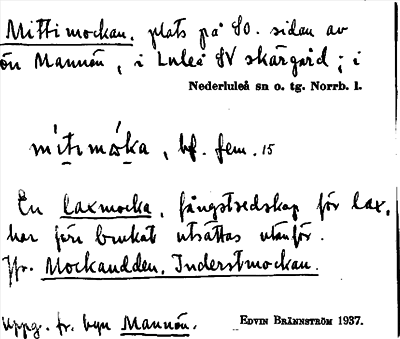 Mittimockan, plats på SO. sidan av
ön Mannön, i Luleå SV skärgård; i
Nederluleå sn o. tg. Norrb. l.
mìtimɔ́ka, bf. fem. 15
En laxmocka, fångstredskap för lax,
har förr brukat utsättas utanför.
Jfr. Mockaudden, Inderstmockan.
Uppg. fr. byn Mannön.
EDVIN BRÄNNSTRÖM 1937.